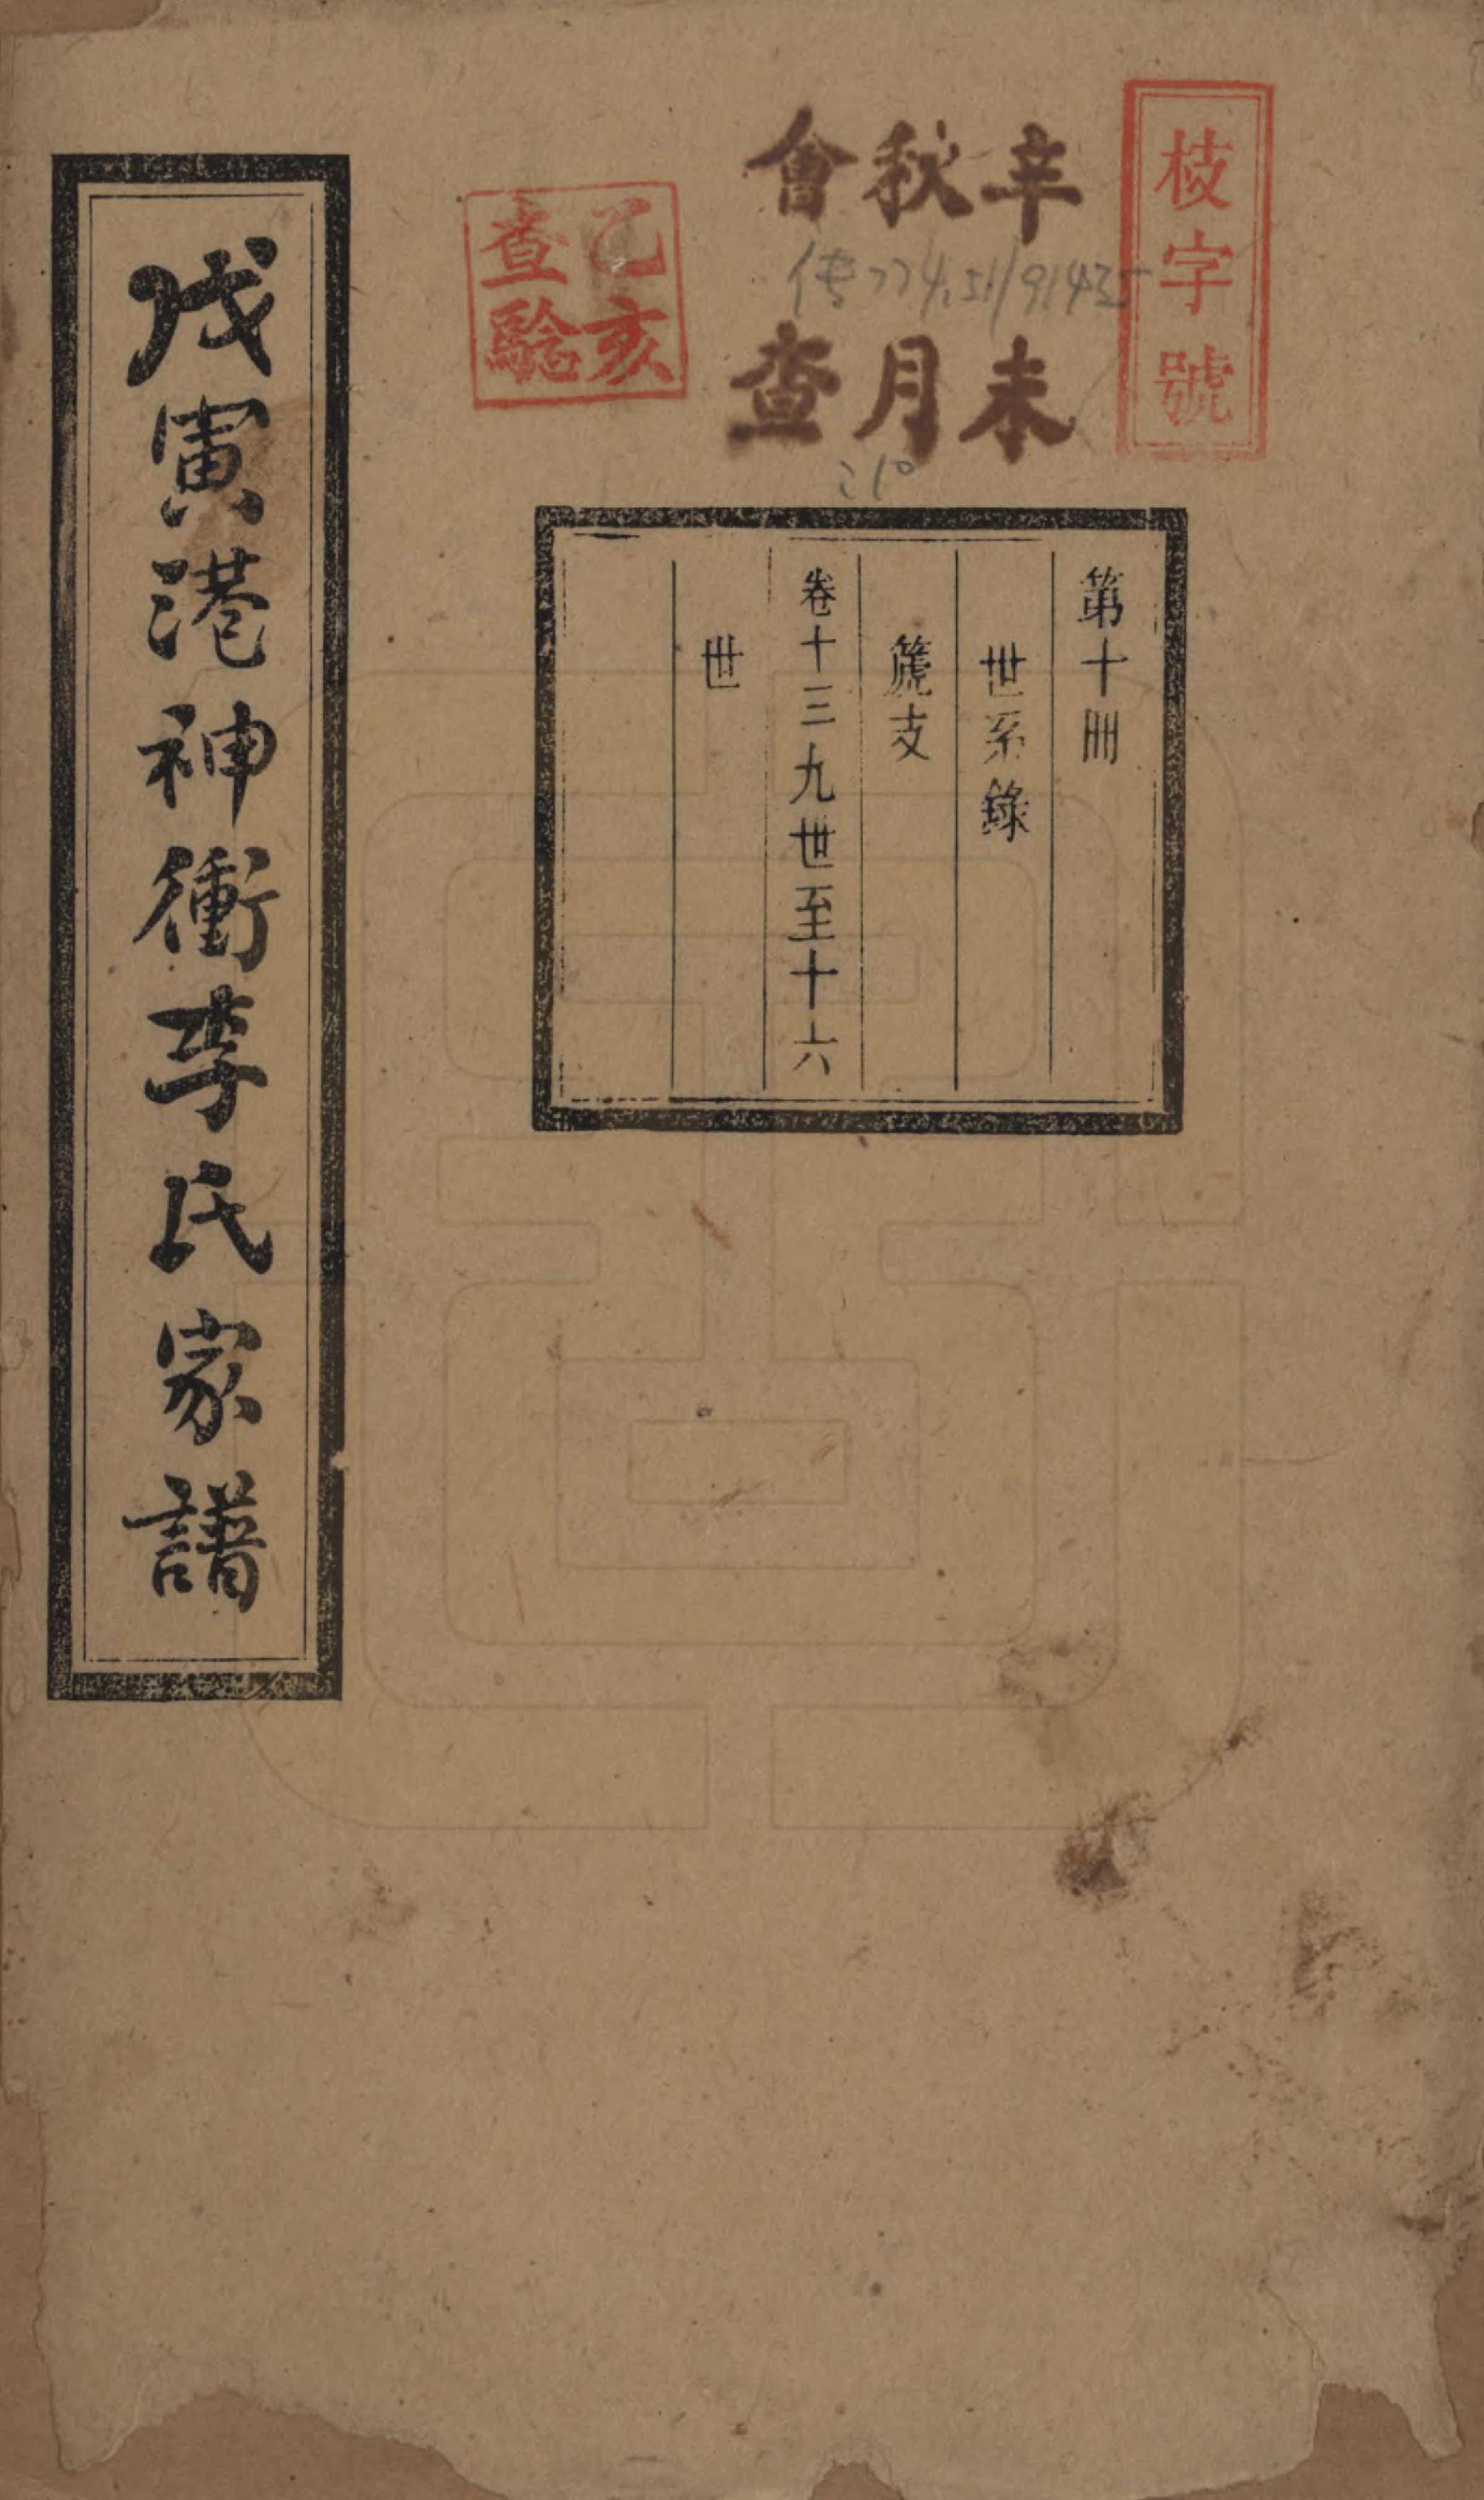 枝字號
辛未
秋月
會查
传774.51/91435
乙亥
查驗
第十冊
世系錄
篪支
卷十三九世至十六
世
戊寅港神衝李氏家譜